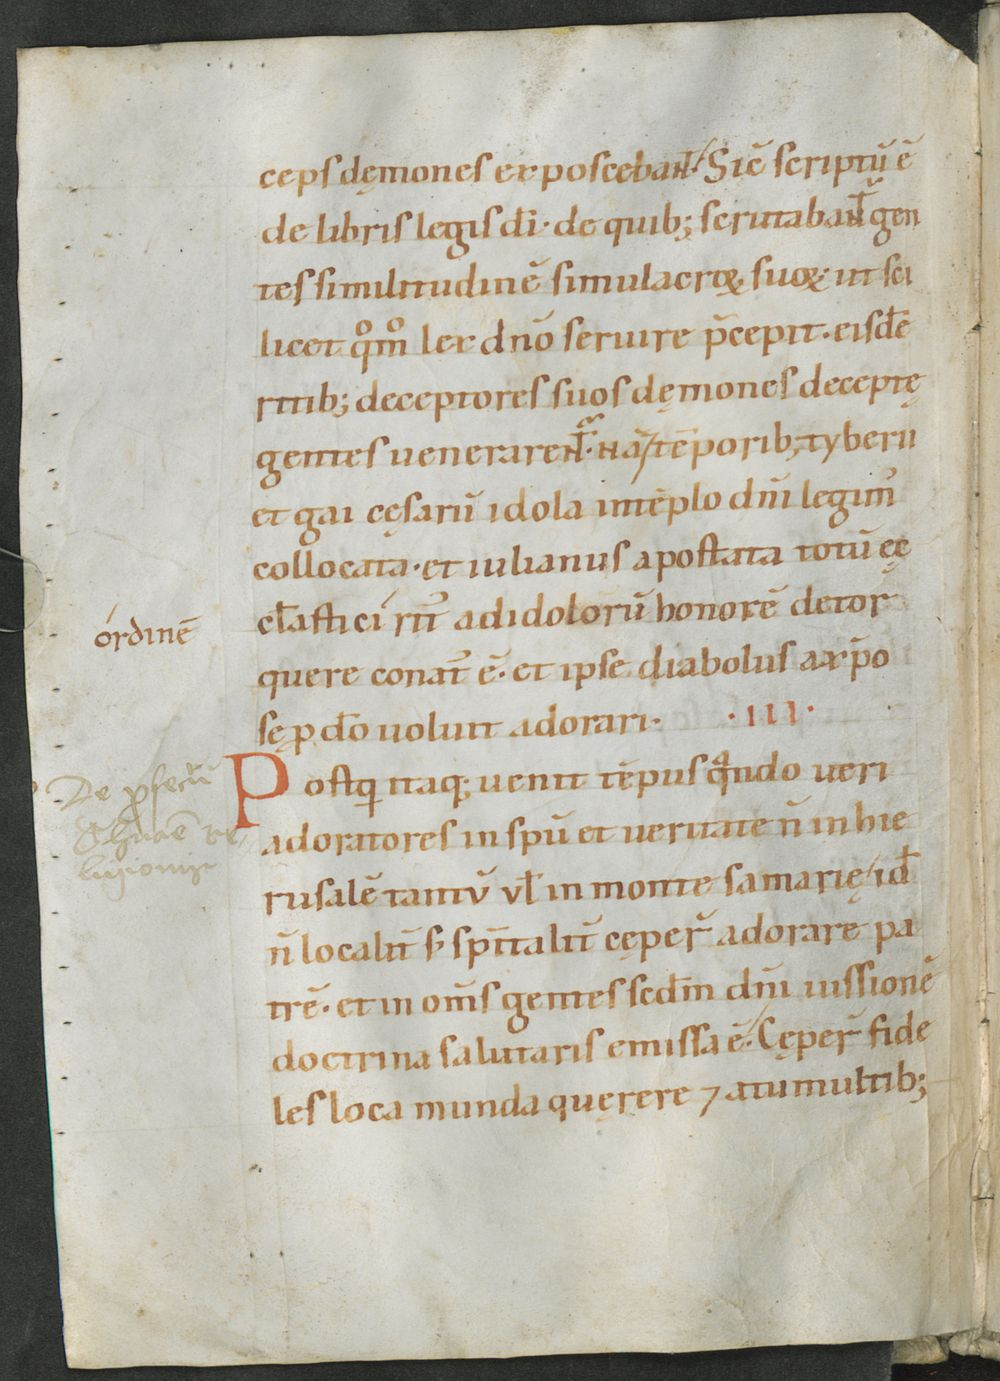 cepſ dęmoneſ expoſcebant. Sic̄ ſcriptū ē
de libriſ legiſ dī· de quib; ſcrutabant̄ gen
teſ ſimilitudinē ſimulacroꝝ ſuoꝝ· ut ſci
licet qm̊ lex dn̄o ſeruire p̄cepit· eiſdē
ritib; deceptoreſ ſuoſ dęmoneſ deceptę
genteſ uenerarent̄· Nā/ tēporib; tyberii
et gai cęſarū idola intēplo dn̄i legim̄
collocata· et iulianuſ apoſtata totū ęc
cl̄aſtici rit̄ ad idolorū honorē detor
ordinē
quere conat̄ ē· et ipſe diaboluſ a xp̄o
ſę p̱ dō uoluit adorari· ·III·
De p̱ſecut̄
Chr̄iaē re
ligioniſ
Poſtq̄ itaq; uenit tēpuſ qn̄do ueri
adoratoreſ in ſpū et ueritate n̄ in hie
ruſalē tantū vl̄ in monte ſamarię/ id̄
n̄ localit̄ ſ· ſpītalit̄ cęper̄ adorare pa
trē· et in om̄ſ genteſ ſecd̄m dn̄i iuſſionē
doctrina ſalutariſ emiſſa ē· Cęper̄ fide
leſ loca munda quęrere ⁊ a tumultib;